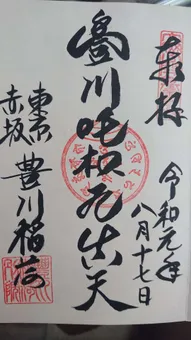 奉拝
令和元年
八月十七日
豊川吒枳尼真天
東京
赤坂
豊川稲荷